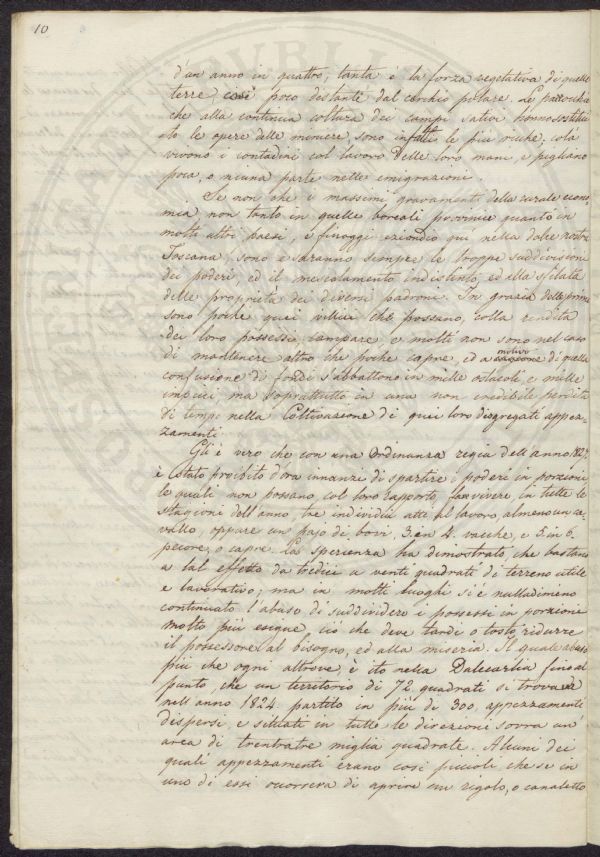 10
d'un anno in quattro; tanta è la forza vegetativa di quelle
terre così poco distanti dal cerchio polare. Le parrocchie
che alla continua coltura dei campi sativi hanno sostitui
to le opere delle miniere, sono infatti le più ricche; colà
vivono i contadini col lavoro delle loro mani, e pigliano
poca, o niuna parte nelle emigrazioni.
Se non che i massimi gravamenti della rurale econo
mia non tanto in quelle boreali provincie quanto in
molti altri paesi, e finaggi eziandio quì nella dolce nostra
Toscana, sono e saranno sempre le troppe suddivisioni
dei poderi, ed il mescolamento indistinto, ed alla sfilata
delle proprietà dei diversi padroni. In grazia delle prime
sono poche quei villici che possano, colla rendita
dei loro possessi, campare, e molti non sono nel caso
di mantenere altro che poche capre, ed a motivo di quella
confusione di fondi s'abbattono in mille ostacoli, e mille
impicci, ma soprattutto in una non credibile perdita
di tempo nella coltivazione di quei loro disgregati appez-
zamenti.
Gli è vero che con una Ordinanza regia dell'anno 1827
è stato proibito d'ora innanzi di spartire i poderi in porzioni,
le quali non possano col loro rapporto, far vivere, in tutte le
stagioni dell'anno, tre individui atti al lavoro, almeno un ca-
vallo, oppure un pajo di bovi, 3. in 4. vacche, e 5. in 6.
pecore, o capre. La sperienza ha dimostrato che bastano
a tal effetto da tredici a venti quadrati di terreno utile
e lavorativo; ma in molti luoghi si è nulladimeno
continuato l'abuso di suddividere i possessi in porzioni
molto più esigue, ciò che deve tardi o tosto, ridurre
il possessore al bisogno, ed alla miseria. Il quale abuso
più che ogni altrove, è ito nella Dalecarlia fino al
punto, che un territorio di 72. quadrati si trovava
nell'anno 1824 partito in più di 300, appezzamenti
dispersi e situati in tutte le direzioni sovra un'
area di trentatre miglia quadrate. Alcuni dei
quali appezzamenti erano così piccoli che se in
uno di essi occorreva di aprire un rigolo, o canaletto